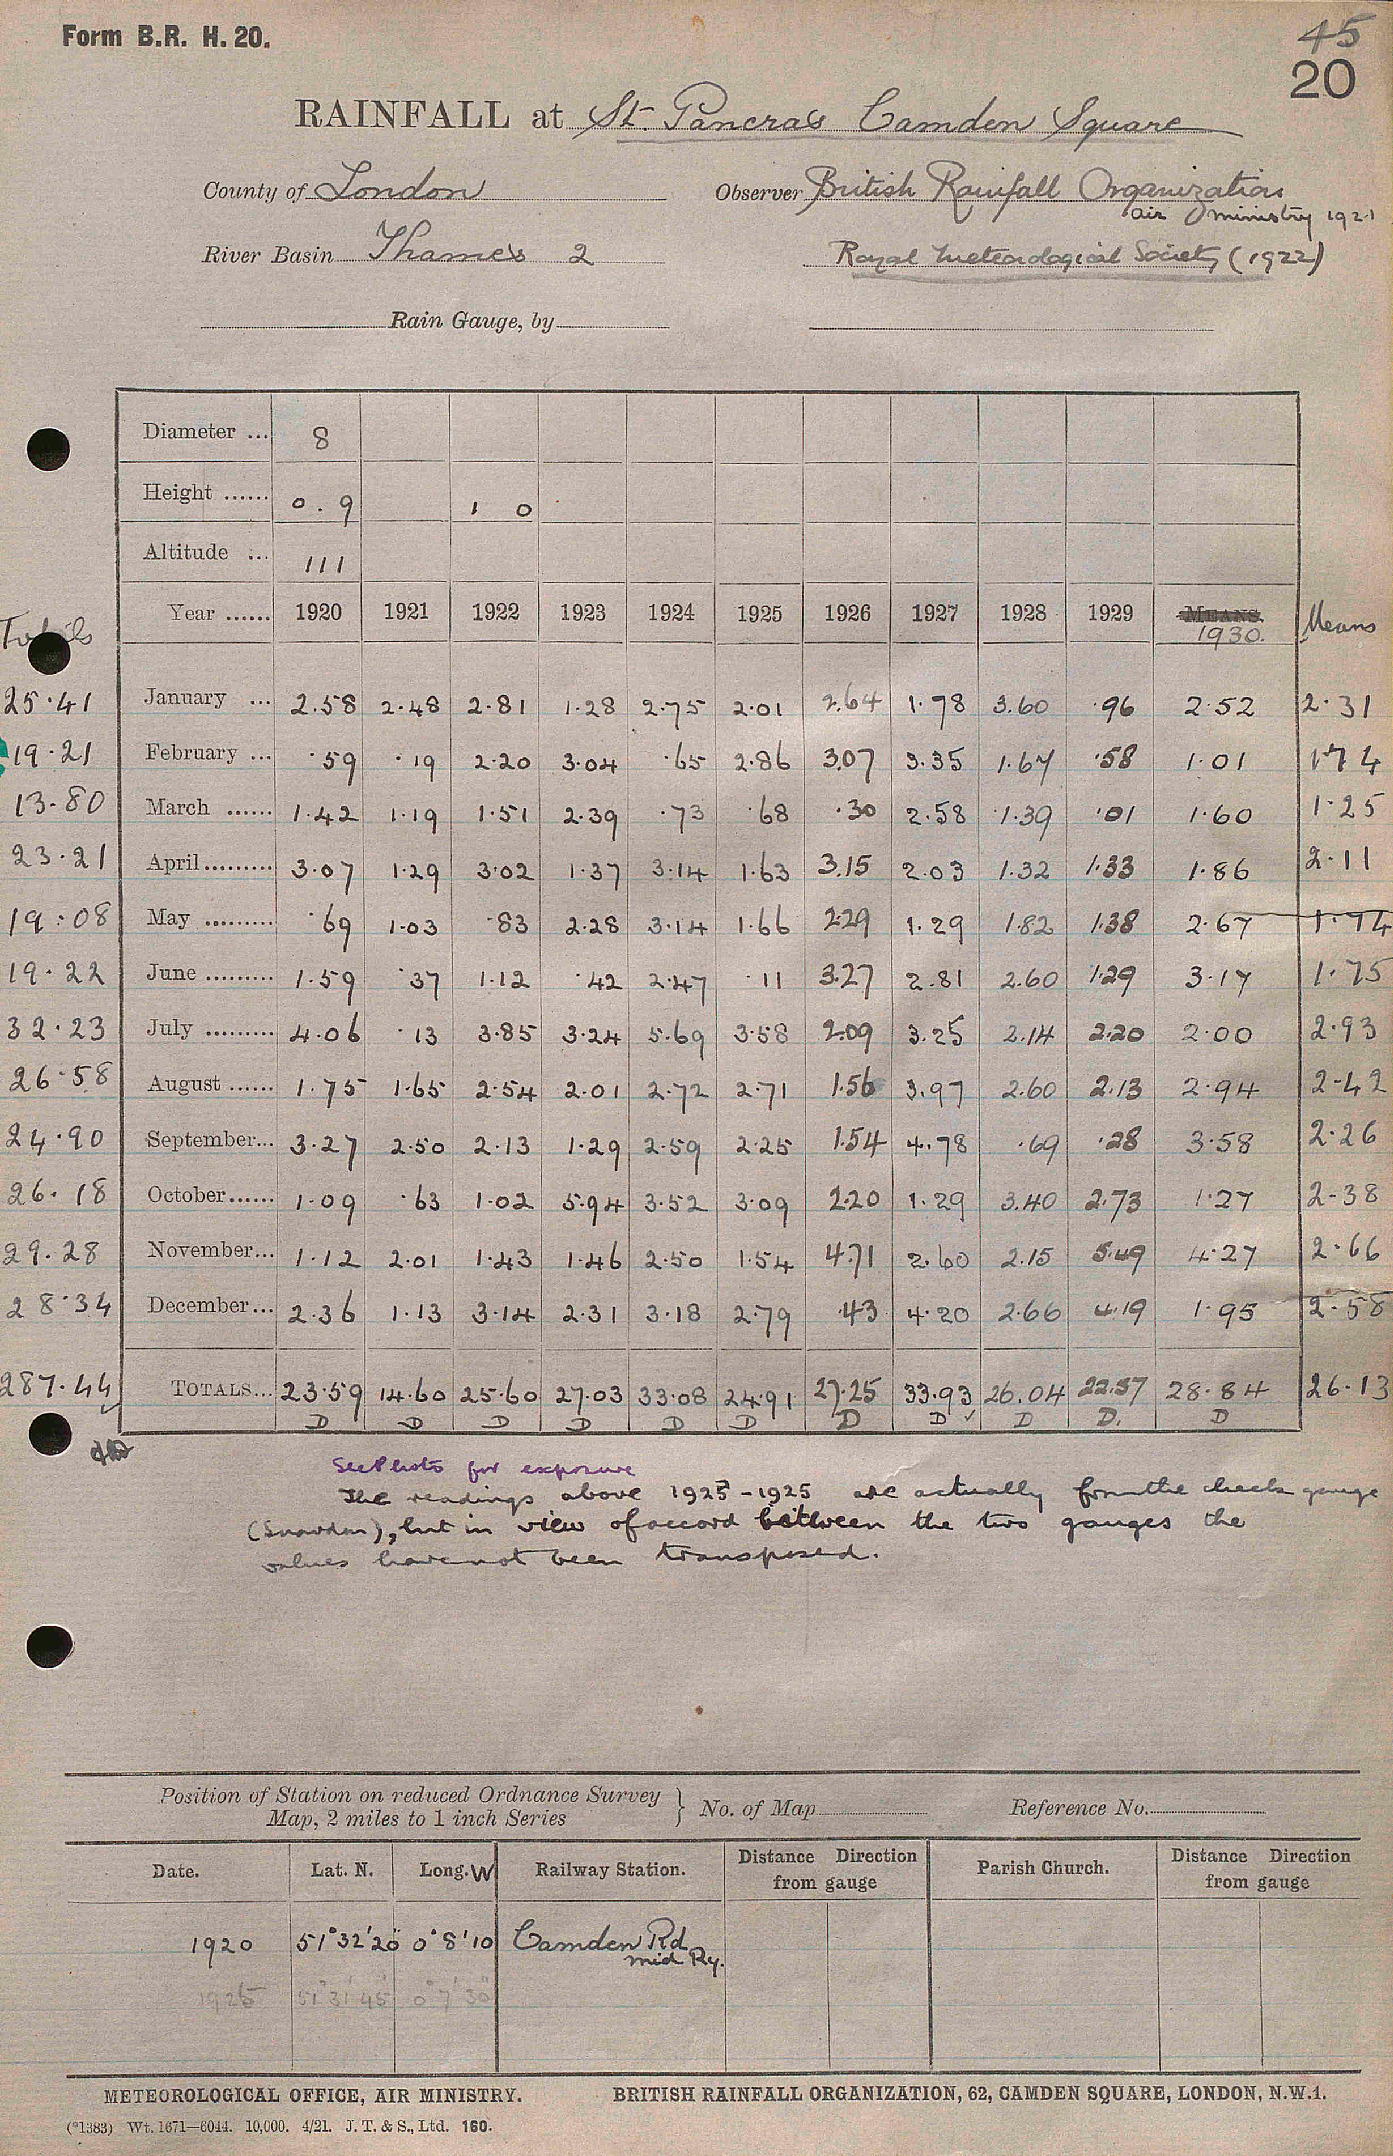 Form B.R. H. 20.
45
20
RAINFALL at St. Pancras Camden Square
County of London Observer British Rainfall Organization
air ministry 1921
River Basin Thames 2 Royal Meteorological Society (1922)
Rain Gauge, by
Diameter ... 8
Height ...... 0.9 1 0
Altitude ... 111
Totals Year ...... 1920 1921 1922 1923 1924 1925 1926 1927 1928 1929 MEANS. 1930. Means
25.41 January ... 2.58 2.48 2.81 1.28 2.75 2.01 2.64 1.78 3.60 .96 2.52 2.31
19.21 February ... .59 .19 2.20 3.04 .65 2.86 3.07 3.35 1.67 .58 1.01 1.74
13.80 March ...... 1.42 1.19 1.51 2.39 .73 .68 .30 2.58 1.39 .01 1.60 1.25
23.21 April......... 3.07 1.29 3.02 1.37 3.14 1.63 3.15 2.03 1.32 1.33 1.86 2.11
19.08 May ......... .69 1.03 .83 2.28 3.14 1.66 2.29 1.29 1.82 1.38 2.67 1.74
19.22 June ......... 1.59 .37 1.12 .42 2.47 .11 3.27 2.81 2.60 1.29 3.17 1.75
32.23 July ......... 4.06 .13 3.85 3.24 5.69 3.58 2.09 3.25 2.14 2.20 2.00 2.93
26.58 August ...... 1.75 1.65 2.54 2.01 2.72 2.71 1.56 3.97 2.60 2.13 2.94 2.42
24.90 September... 3.27 2.50 2.13 1.29 2.59 2.25 1.54 4.78 .69 .28 3.58 2.26
26.18 October...... 1.09 .63 1.02 5.94 3.52 3.09 2.20 1.29 3.40 2.73 1.27 2.38
29.28 November... 1.12 2.01 1.43 1.46 2.50 1.54 4.71 2.60 2.15 5.49 4.27 2.66
28.34 December... 2.36 1.13 3.14 2.31 3.18 2.79 .43 4.20 2.66 4.19 1.95 2.58
287.44 TOTALS... 23.59 14.60 25.60 27.03 33.08 24.91 27.25 33.93 26.04 22.57 28.84 26.13
D D D D D D D D ✓ D D. D
See Photo for exposure
The readings above 1925-1925 are actually from the check gauge
(Snowdon), but in view of accord between the two gauges the
values have not been transposed.
Position of Station on reduced Ordnance Survey
Map, 2 miles to 1 inch Series } No. of Map Reference No.
Date. Lat. N. Long. W Railway Station. Distance Direction from gauge Parish Church. Distance Direction from gauge
1920 51°32'20" 0°8'10 Camden Rd
mid Ry.
1925 51°31'45" 0°7'30"
METEOROLOGICAL OFFICE, AIR MINISTRY. BRITISH RAINFALL ORGANIZATION, 62, CAMDEN SQUARE, LONDON, N.W.1.
(*1383) Wt. 1671—6044. 10,000. 4/21. J. T. & S., Ltd. 160.